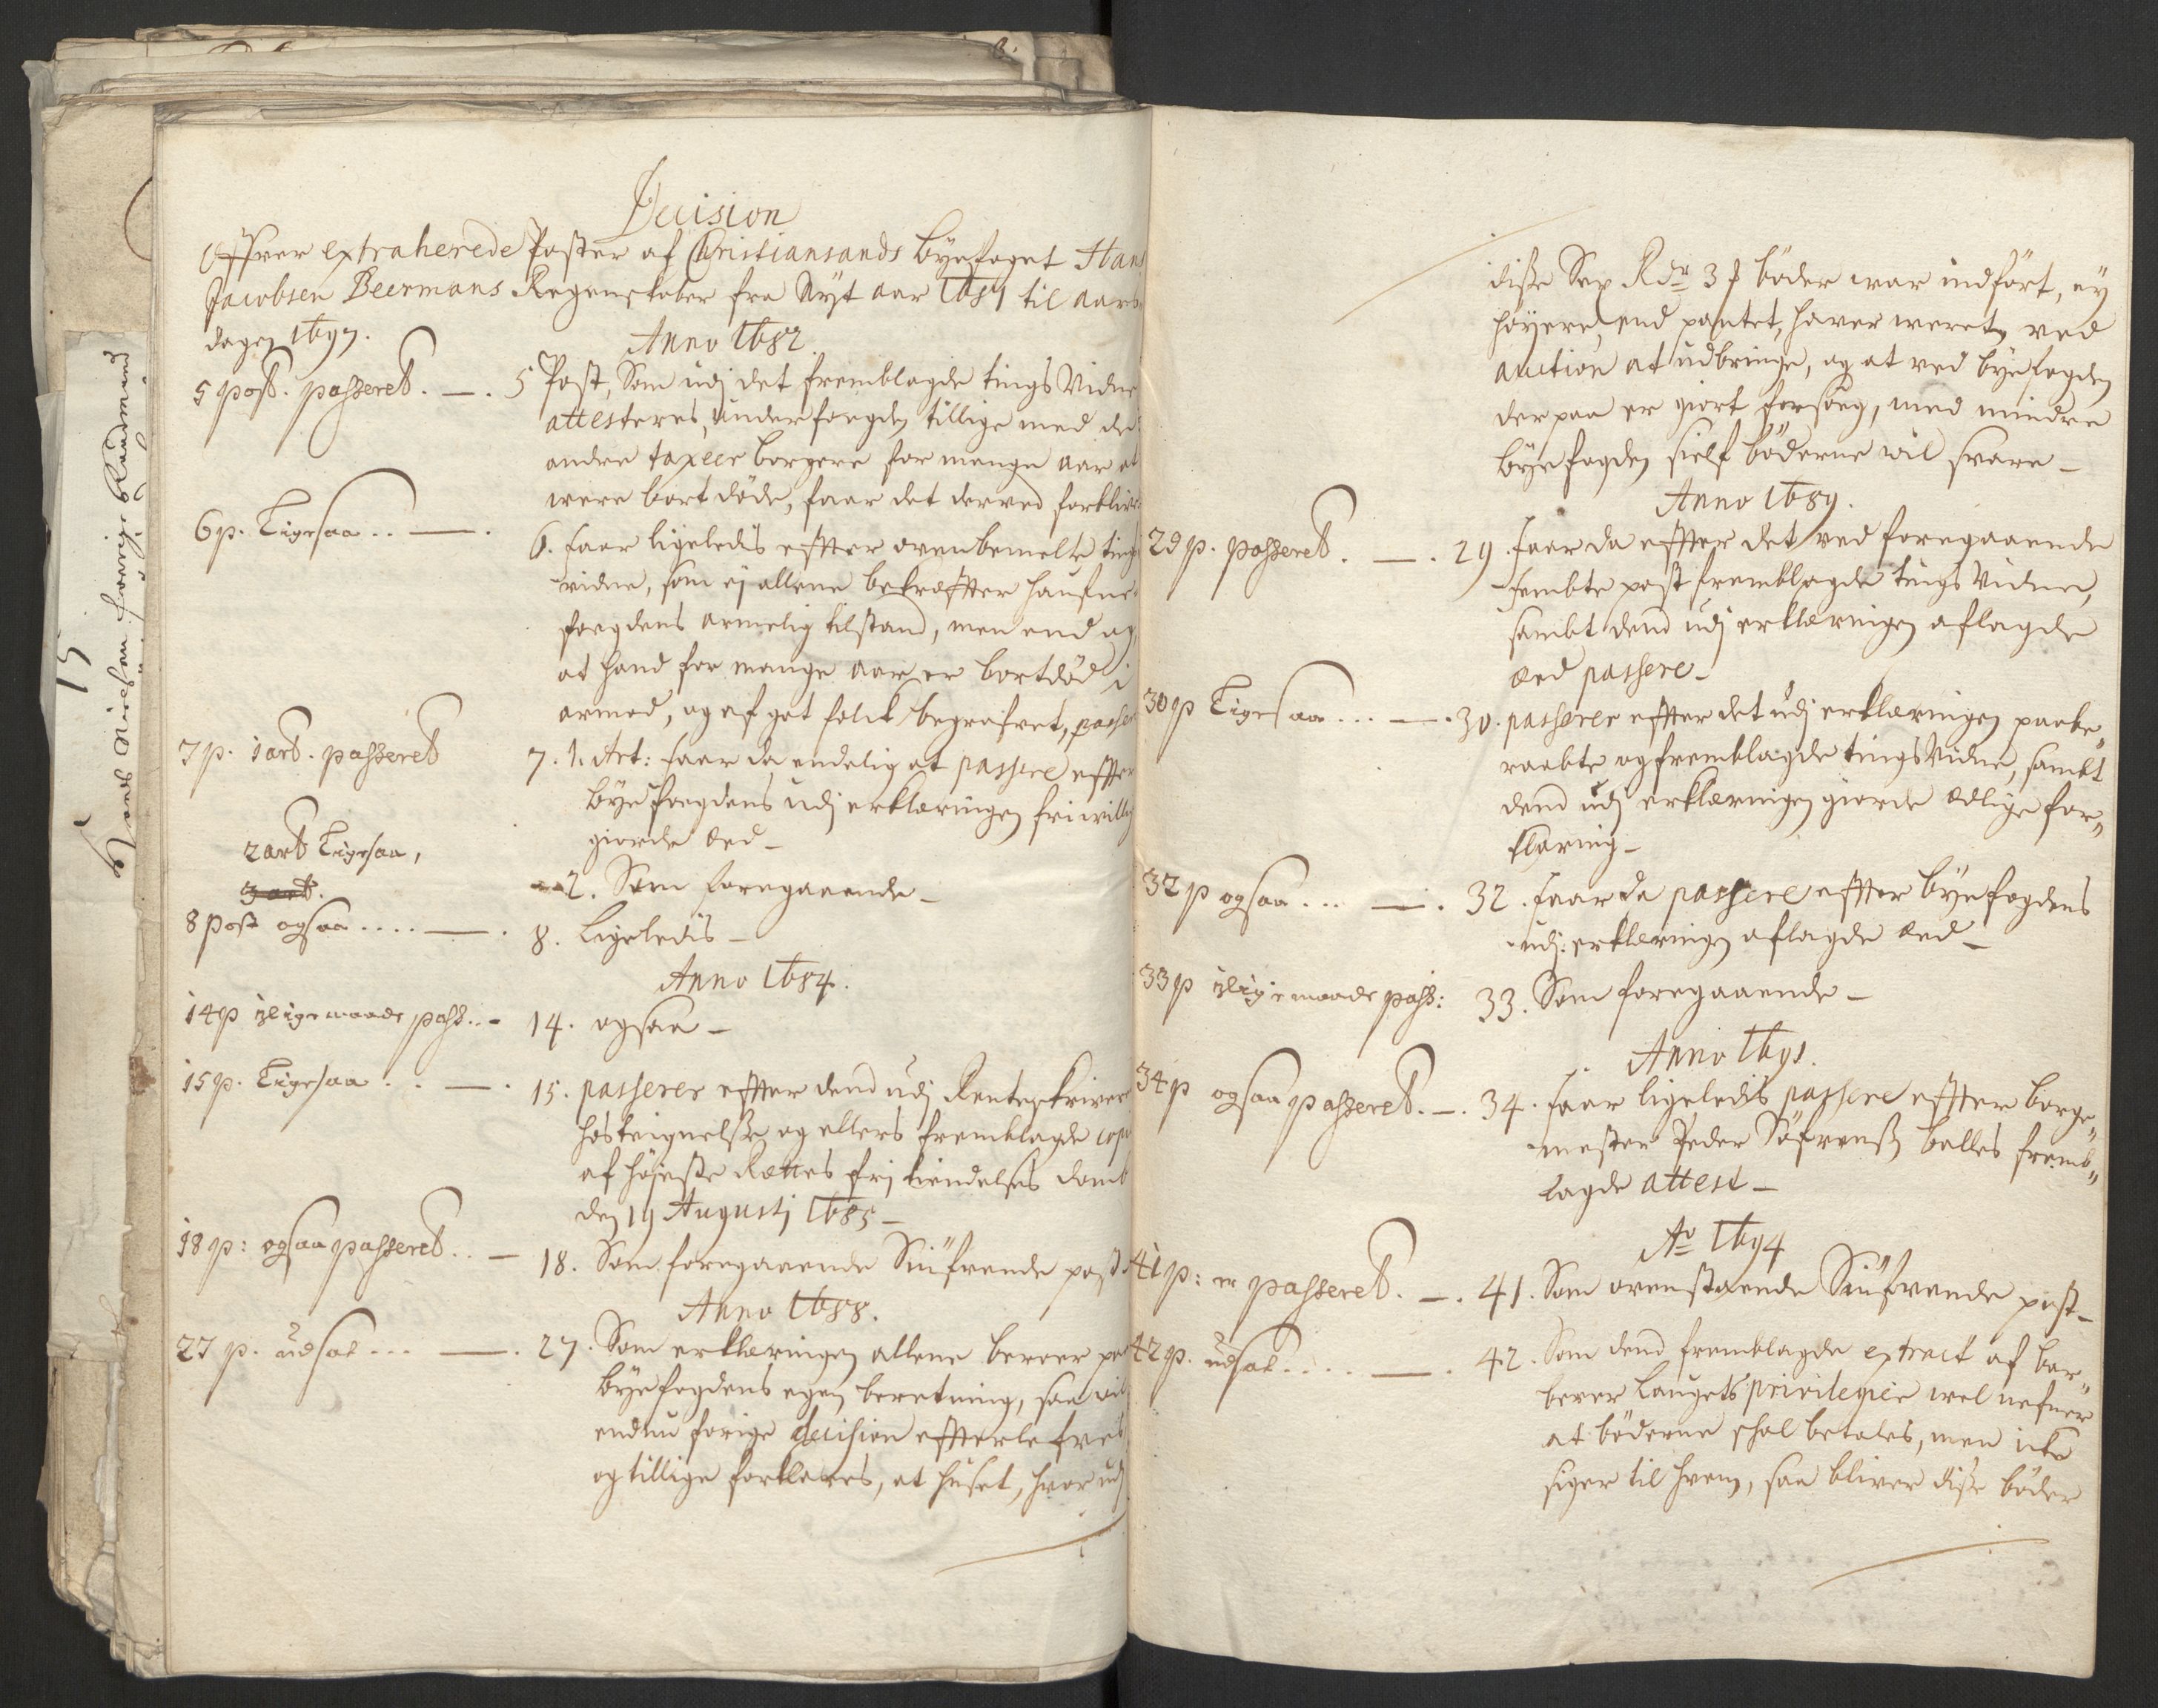 Decision
Offver extraherede Poster af Christiansands byefoget Hans
Jacobsen Beermans Regenskaber fra Nyt aar 1681 til aars
dagen 1697.
Anno 1682
5 post. passeret. —.
5 Post, Som udj det fremblagde tings Vidne
attesteres, underfoegden tillige med de
andre taxeer borgere for mange aar at
were bort døde, faar det derved forblive
6 p. Ligesaa .. —.
6. faar ligeledis effter ovenbemelte tings
vidne, som ej allene bekræffter
foegdens armelig tilstand, men end og
at hand for mange aar er bortdød i
armod, og af got folck begrafvet, passere
7 p. 1 art. passeret
7. 1. Art: faar da endelig at passere effter
byefoegdens udj erklæringen friwillig
giorde æed —
2 art Ligesaa,
2. Som foregaaende —
3 art.
8 post ogsaa .... —.
8. Ligeledis —
Anno 1684.
14 p iligemaade pass.. -
14. ogsaa —
15 p. Ligesaa .. —.
15. passerer effter dend udj Renteskriver
hosteignelse og ellers fremblagde copie
af højeste Rættes frj kiendelses domb
den 19 Augustj 1685 —
18 p: ogsaa passeret .. —
18. Som foregaaende Siufvende post
Anno 1688.
27 p. udsat ... —.
27. Som erklæringen allene beroer paa
byefogdens egen beretning, saa vil
endnu forige decision effterlefves
og tillige forklares, at huset, hvor udj
disse Sex Rdr 3 f bøder war indført, ey
høyere, end pantet, haver weret, ved
auction at udbringe, og at ved byefogden
der paa er giort forsøeg, med mindre
byefogden sielf bøderne wil svare —
Anno 1689.
29 p. passeret. —.
29. faar da effter det ved foregaaende
fembte post fremblagde tings Vidne,
sambt dend udj erklæringen aflagde
æed passere —
30 p Ligesaa ... —.
30. passerer effter det udj erklæringen paabe„
raabte og fremblagde tings Vidne, sambt
dend udj erklæringen giorde ædlige for„
klaring —
32 p ogsaa ... —.
32. faar da passere effter byefogdens
udj: erklæringen aflagde æed —
33 p iligemaade pass:
33. Som foregaaende —
Anno 1691.
34 p ogsaa passeret. —.
34. faar ligeledis passere effter borge„
mester Peder Søfrenss balles fremb„
lagde attest —
Ao 1694
41 p: er passeret. —.
41. Som ovenstaaende Siufvende post —
42 p. udsat .... —.
42. Som dend fremblagde extract af bar„
berer Laugets privilegier wel nefner
at bøderne skal betales, men icke
siger til hvem, saa bliver disse bøder
15